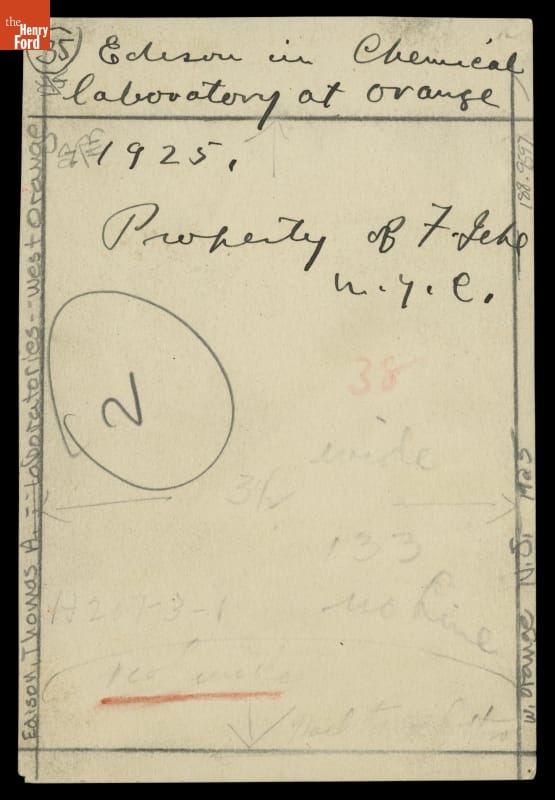 the
Henry
Ford
35
Edison in Chemical
laboratory at orange
1925.
Property of F. Jehl
n.y.C.
2
38
wide
3½
133
no line
H207-3-1
Edison, Thomas A. -- laboratories -- West Orange
188.9597
W. Orange N.J. 1925